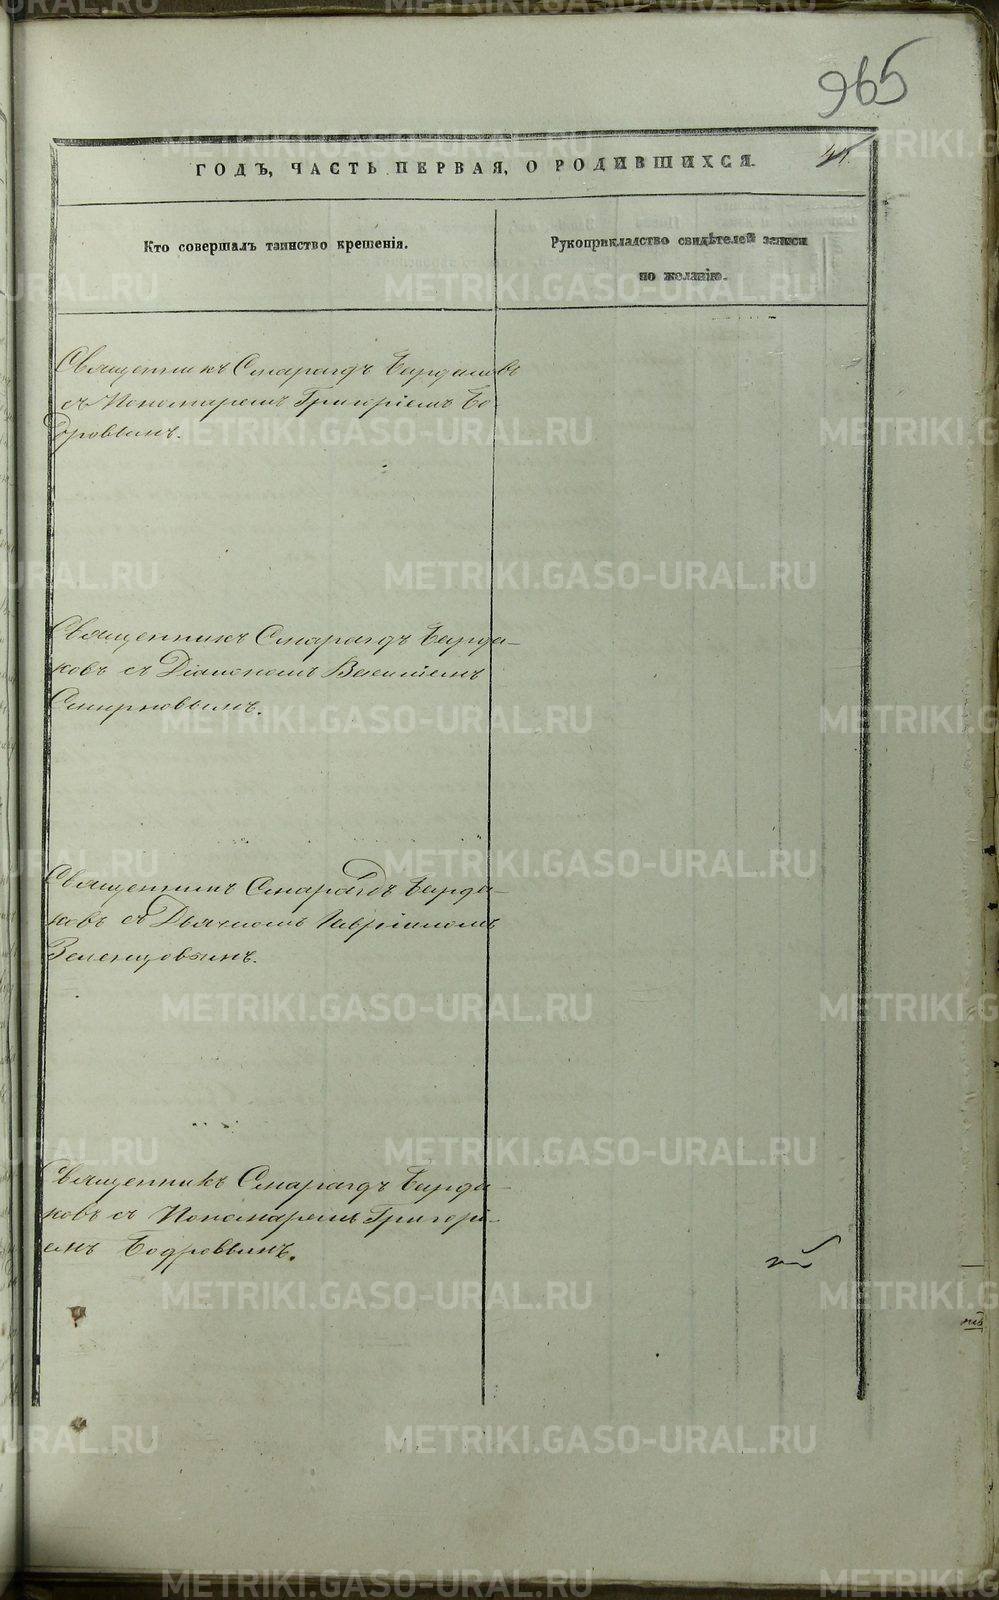 965
44.
ГОДЪ, ЧАСТЬ ПЕРВАЯ, О РОДИВШИХСЯ.
Кто совершалъ таинство крещенія.
Рукоприкладство свидѣтелей записи
по желанію.
Священникъ Смарагдъ Бардаковъ
съ Пономаремъ Григоріемъ Бо
дровымъ.
Священникъ Смарагдъ Барда-
ковъ съ Діакономъ Василіемъ
Смирновымъ.
Священникъ Смарагдъ Барда-
ковъ съ Дьячкомъ Гавріиломъ
Зеленцовымъ.
Священникъ Смарагдъ Барда-
ковъ съ Пономаремъ Григорі-
емъ Бодровымъ.
METRIKI.GASO-URAL.RU